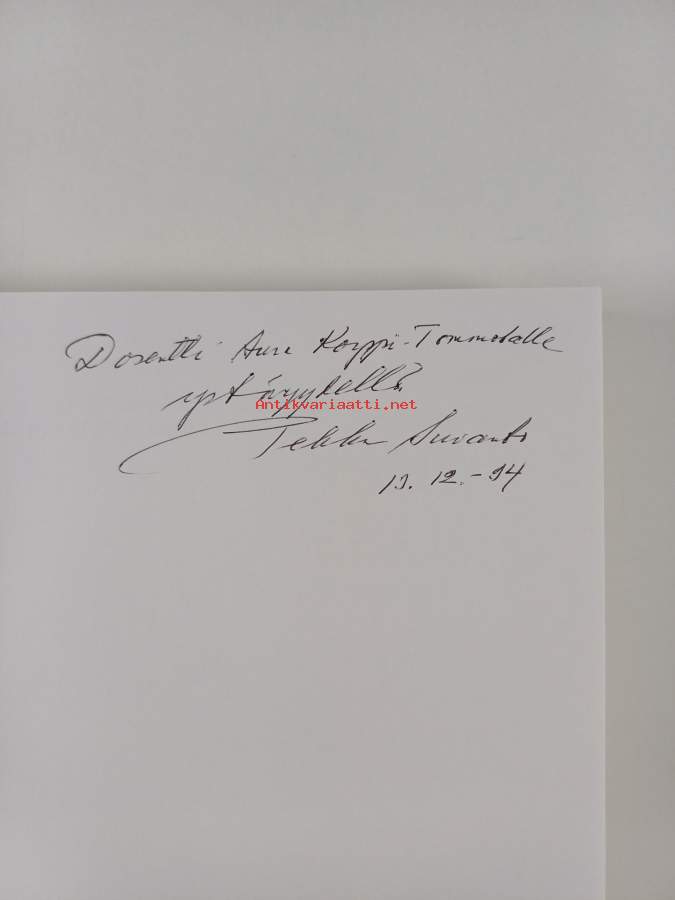 Dosentti Aura Korppi-Tommolalle
ystävyydellä
Antikvariaatti.net
Pekka Suvanto
13. 12.-94